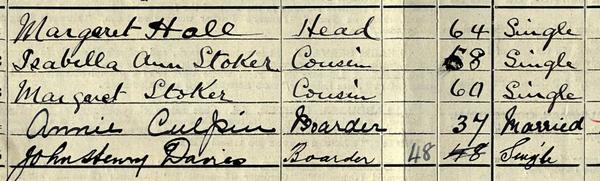 Margaret Hall Head 64 Single
Isabella Ann Stoker Cousin 68 Single
Margaret Stoker Cousin 60 Single
Annie Culpin Boarder 37 Married
John Henry Davies Boarder 48 48 Single